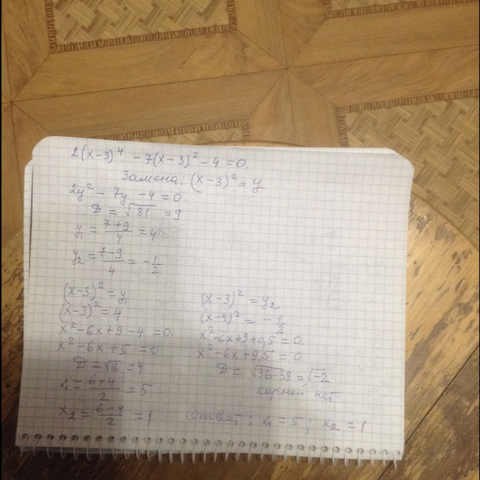 2(x-3)⁴ - 7(x-3)² - 4 = 0.
Замена: (x-3)² = y
2y² - 7y - 4 = 0
D = √81 = 9
y₁ = (7+9)/4 = 4
y₂ = (7-9)/4 = -1/2
(x-3)² = y₁
(x-3)² = 4
x² - 6x + 9 - 4 = 0
x² - 6x + 5 = 0
D = √16 = 4
x₁ = (6+4)/2 = 5
x₂ = (6-4)/2 = 1
(x-3)² = y₂
(x-3)² = -1/2
x² - 6x + 9 + 0,5 = 0
x² - 6x + 9,5 = 0
D = √36-38 = √-2
корней нет
Ответ: x₁ = 5; x₂ = 1